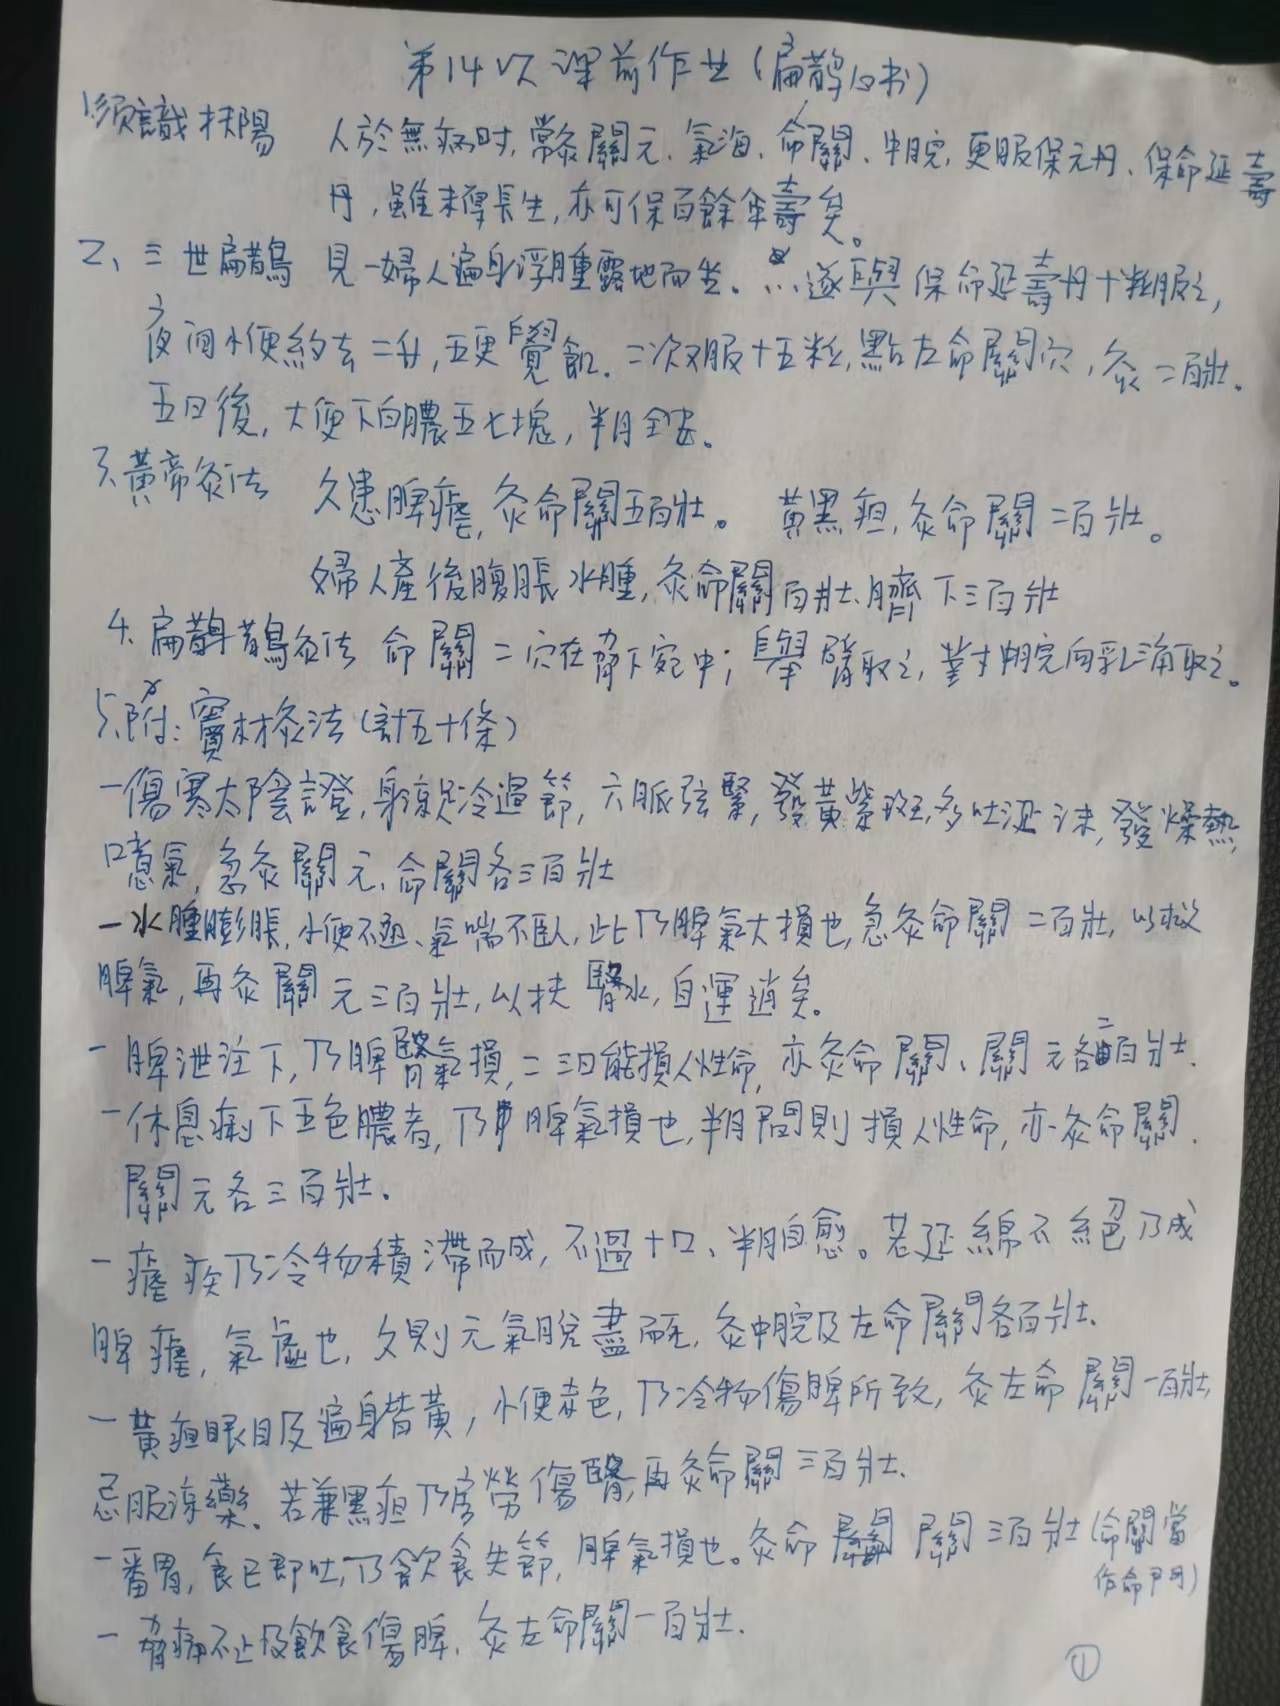 第14次课前作业(扁鹊心书)
1.須識扶陽 人於無病时,常灸關元、氣海、命關、中脘,更服保元丹、保命延壽
丹,雖未得長生,亦可保百餘年壽矣。
2、三世扁鵲 見一婦人遍身浮腫露地而坐。…遂與保命延壽丹十粒服之,
夜间小便約去二升,五更覺飢。二次又服十五粒,點左命關穴,灸二百壯。
五日後,大便下白膿五七塊,半月全安。
3、黃帝灸法 久患脾瘧,灸命關五百壯。 黃黑疸,灸命關二百壯。
婦人產後腹脹水腫,灸命關百壯、臍下三百壯
4.扁鵲灸法 命關二穴在脅下宛中;舉臂取之,對中脘向乳三角取之。
5、附:竇材灸法(計五十條)
一傷寒太陰證,身涼足冷過節,六脈弦緊,發黃紫斑,多吐涎沫,發燥熱,
噫氣,急灸關元、命關各三百壯
一水腫膨脹,小便不通、氣喘不臥,此乃脾氣大損也,急灸命關二百壯,以救
脾氣,再灸關元三百壯,以扶腎水,自運消矣。
一脾泄注下,乃脾腎氣損,二三日能損人性命,亦灸命關、關元各二百壯.
一休息痢下五色膿者,乃脾氣損也,半月間則損人性命,亦灸命關、
關元各三百壯.
一瘧疾乃冷物積滯而成,不過十日、半月自愈。若延綿不絕乃成
脾瘧,氣虛也,久則元氣脫盡而死,灸中脘及左命關各百壯.
一黃疸眼目及遍身皆黃,小便赤色,乃冷物傷脾所致,灸左命關一百壯,
忌服涼藥。若兼黑疸乃房勞傷腎,再灸命關三百壯.
一番胃,食已即吐,乃飲食失節,脾氣損也。灸命關 關三百壯(命關當
作命門)
一脅痛不止及飲食傷脾,灸左命關一百壯.
①